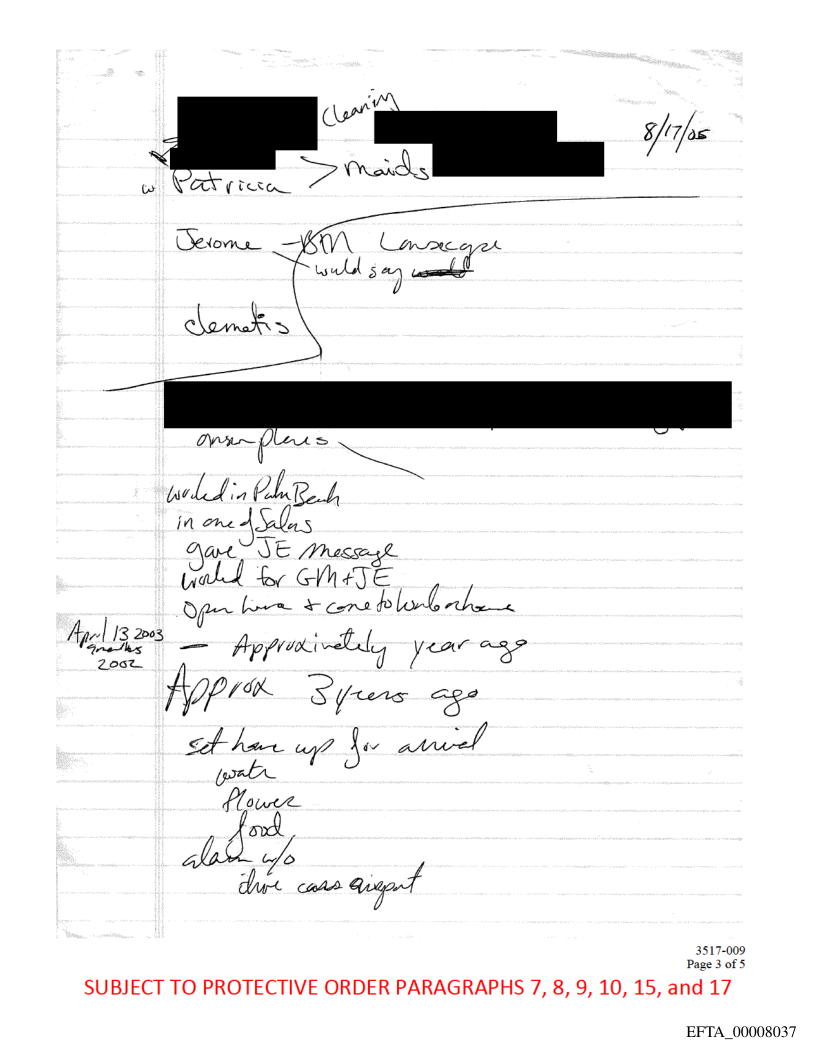 Cleaning
8/17/05
> Maids
w Patricia
Jerome - BM
would say would
clematis
worked in Palm Beach
in one of Salons
gave JE message
worked for GM + JE
open home + come to
April 13 2003
9 months
2002
— Approximately year ago
Approx 3 years ago
set home up for arrival
water
flower
food
alarm w/o
drive cars airport
3517-009
Page 3 of 5
SUBJECT TO PROTECTIVE ORDER PARAGRAPHS 7, 8, 9, 10, 15, and 17
EFTA_00008037